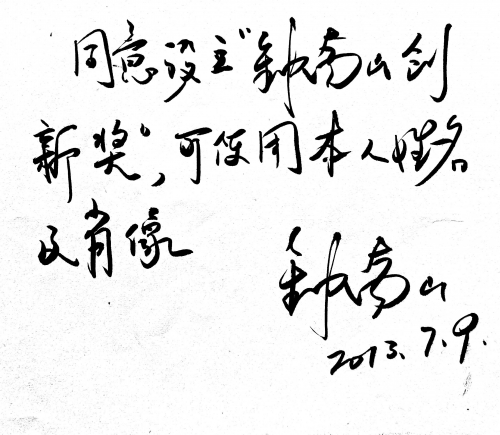 同意设立“钟南山创
新奖”,可使用本人姓名
及肖像
钟南山
2013.7.9.